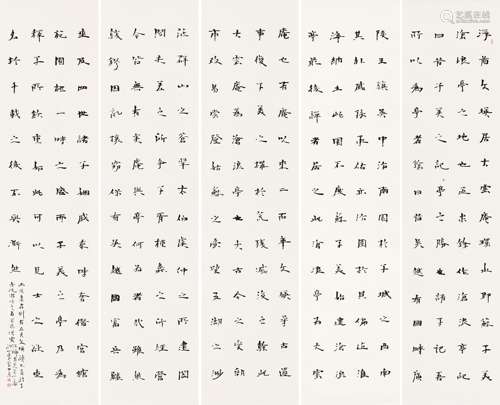 浮圖文瑛居大雲庵環水即蘇子美
滄浪亭之地也亟求余作滄浪亭記
曰昔子美之記記亭之勝也請子記吾
所以為亭者余曰昔吳越有國時廣
陵王鎮吳中治南園於子城之西南
其外戚孫承佑亦治園於其偏迨淮
海納土此園不廢蘇子美始建滄浪
亭最後禪者居之此滄浪亭為大雲
庵也有庵以來二百年文瑛尋古遺
事復子美之構於荒殘滅沒之餘此
大雲庵為滄浪亭也夫古今之變朝
市改易嘗登姑蘇之臺望五湖之渺
茫群山之蒼翠太伯虞仲之所建
闔閭夫差之所爭子胥種蠡之所經營
今皆無有矣庵與亭何為者哉雖然
錢鏐因亂攘竊保有吳越國富兵強
垂及四世諸子姻戚乘時奢僭宮館
苑囿極一時之盛而子美之亭乃為
釋子所欽重如此可以見士之欲垂
名於千載之後不與澌然